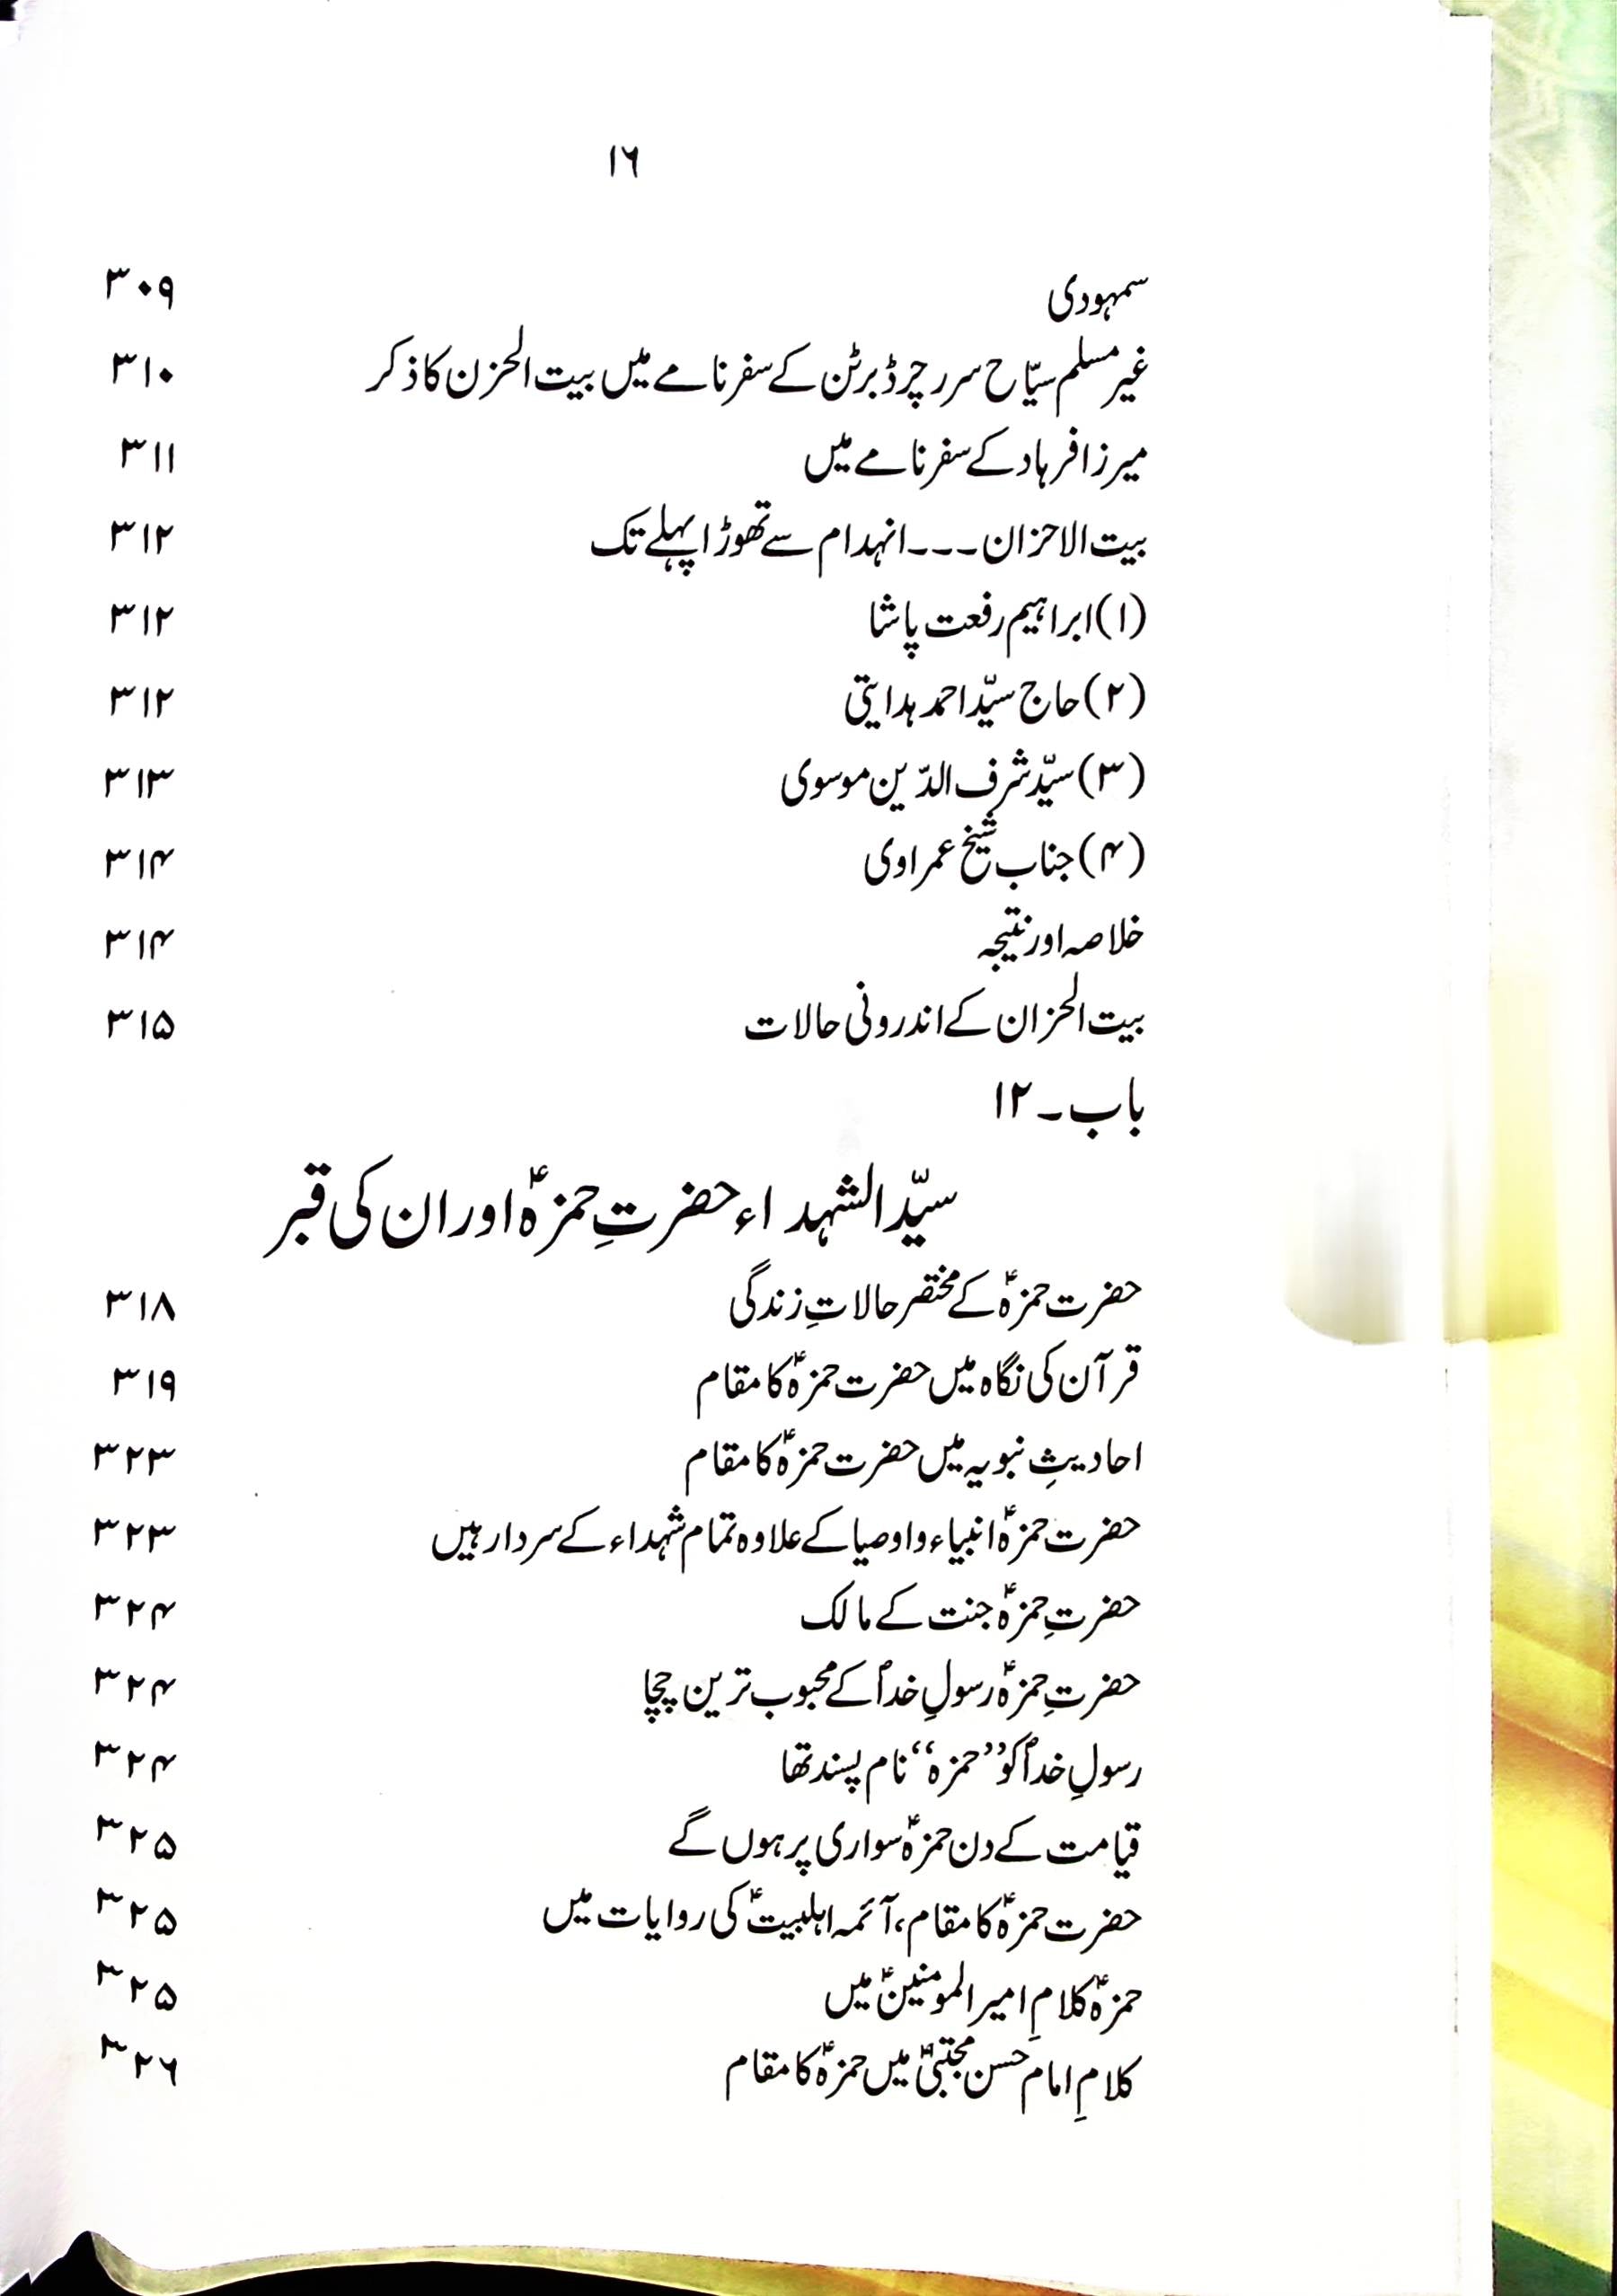 ۱۶
سمہودی ۳۰۹
غیر مسلم سیّاح سر رچرڈ برٹن کے سفرنامے میں بیت الحزن کا ذکر ۳۱۰
میرزا فرہاد کے سفرنامے میں ۳۱۱
بیت الاحزان۔۔۔انہدام سے تھوڑا پہلے تک ۳۱۲
(۱) ابراہیم رفعت پاشا ۳۱۲
(۲) حاج سیّد احمد ہدایتی ۳۱۲
(۳) سیّد شرف الدّین موسوی ۳۱۳
(۴) جناب شیخ عمراوی ۳۱۴
خلاصہ اور نتیجہ ۳۱۴
بیت الحزان کے اندرونی حالات ۳۱۵
باب۔۱۲
سیّد الشہداء حضرتِ حمزہؑ اور ان کی قبر
حضرت حمزہؑ کے مختصر حالاتِ زندگی ۳۱۸
قرآن کی نگاہ میں حضرت حمزہؑ کا مقام ۳۱۹
احادیثِ نبویہ میں حضرت حمزہؑ کا مقام ۳۲۳
حضرت حمزہؑ انبیاء و اوصیا کے علاوہ تمام شہداء کے سردار ہیں ۳۲۳
حضرتِ حمزہؑ جنت کے مالک ۳۲۴
حضرتِ حمزہؑ رسولِ خداؐ کے محبوب ترین چچا ۳۲۴
رسولِ خداؐ کو ’’حمزہ‘‘ نام پسند تھا ۳۲۴
قیامت کے دن حمزہؑ سواری پر ہوں گے ۳۲۵
حضرت حمزہؑ کا مقام، آئمہ اہلبیتؑ کی روایات میں ۳۲۵
حمزہؑ کلامِ امیر المومنینؑ میں ۳۲۵
کلامِ امام حسن مجتبیٰؑ میں حمزہؑ کا مقام ۳۲۶